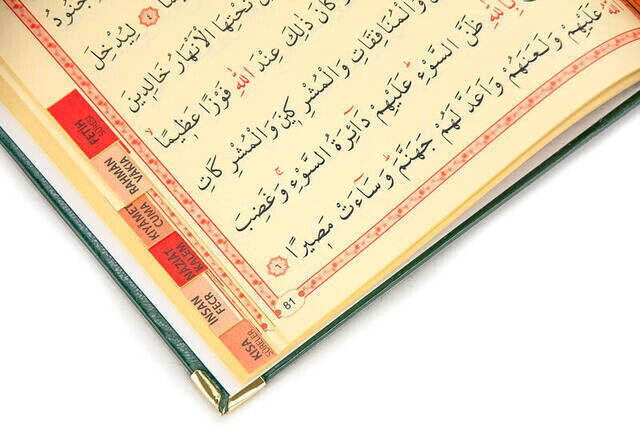 جُنُودُ
٤ لِيُدْخِلَ
تَحْتِهَا الْاَنْهَارُ خَالِدِينَ
كَانَ ذٰلِكَ عِنْدَ اللّٰهِ فَوْزًا عَظِيمًا
وَالْمُنَافِقَاتِ وَالْمُشْرِكِينَ وَالْمُشْرِكَاتِ
بِاللّٰهِ ظَنَّ السَّوْءِ عَلَيْهِمْ دَٓائِرَةُ السَّوْءِ وَغَضِبَ
عَلَيْهِمْ وَلَعَنَهُمْ وَاَعَدَّ لَهُمْ جَهَنَّمَ وَسَٓاءَتْ مَصِيرًا ٦
81
FETİH
SURESİ
RAHMAN
VAKIA
KIYAMET
CUMA
NAZİAT
KALEM
INSAN
FECR
KISA
SURELER